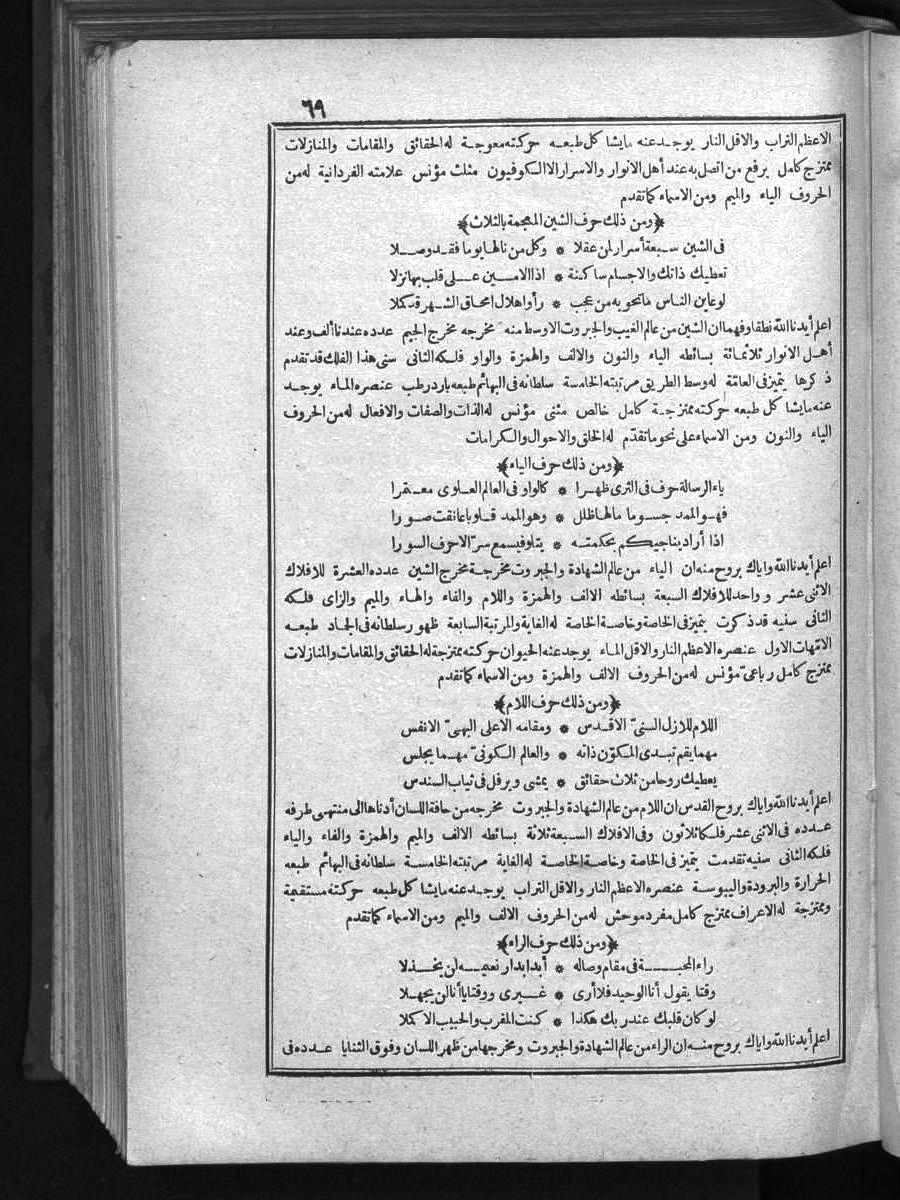 ٦٩
الاعظم التراب والاقل النار يوجد عنه مايشا كل طبعه حركته معوجة له الحقائق والمقامات والمنازلات
ممتزج كامل يرفع من اتصل به عند أهل الانوار والاسرار الا الكوفيون مثلث مؤنس علامته الفردانية له من
الحروف الياء والميم ومن الاسماء كما تقدم
﴿ومن ذلك حرف الشين المعجمة بالثلاث﴾
فى الشين سبعة أسرار لمن عقلا * وكل من نالها يوما فقد وصلا
تعطيك ذاتك والاجسام ساكنة * اذا الامين على قلب بها نزلا
لو عاين الناس ما تحويه من عجب * رأوا هلال امحاق الشهر قد كملا
اعلم أيدنا الله نطقا وفهما ان الشين من عالم الغيب والجبروت الاوسط منه مخرجه مخرج الجيم عدده عندنا ألف وعند
أهل الانوار ثلاثمائة بسائطه الياء والنون والالف والهمزة والواو فلكه الثانى سنى هذا الفلك قد تقدم
ذكرها يتميز فى العامّة له وسط الطريق مرتبته الخامسة سلطانه فى البهائم طبعه بارد رطب عنصره الماء يوجد
عنه مايشا كل طبعه حركته ممتزجة كامل خالص مثنى مؤنس له الذات والصفات والافعال له من الحروف
الياء والنون ومن الاسماء على نحو ما تقدّم له الخلق والاحوال والكرامات
﴿ومن ذلك حرف الياء﴾
ياء الرسالة حرف فى الثرى ظهرا * كالواو فى العالم العلوى معتمرا
فهو الممد جسوما مالها ظلل * وهو الممد قلوبا عانقت صورا
اذا أراد يناجيكم بحكمته * يتلو فيسمع سرّ الاحرف السورا
اعلم أيدنا الله واياك بروح منه ان الياء من عالم الشهادة والجبروت مخرجة مخرج الشين عدده العشرة للافلاك
الاثنى عشر و واحد للافلاك السبعة بسائطه الالف والهمزة واللام والفاء والهاء والميم والزاى فلكه
الثانى سنيه قد ذكرت يتميز فى الخاصة وخاصة الخاصة له الغاية والمرتبة السابعة ظهور سلطانه فى الجماد طبعه
الامّهات الاول عنصره الاعظم النار والاقل الماء يوجد عنه الحيوان حركته ممتزجة له الحقائق والمقامات والمنازلات
ممتزج كامل رباعى مؤنس له من الحروف الالف والهمزة ومن الاسماء كما تقدم
﴿ومن ذلك حرف اللام﴾
اللام للازل السنىّ الاقدس * ومقامه الاعلى البهىّ الانفس
مهما يقم تبدى المكوّن ذاته * والعالم الكونىّ مهما يجلس
يعطيك روحا من ثلاث حقائق * يمشى ويرفل فى ثياب السندس
اعلم أيدنا الله واياك بروح القدس ان اللام من عالم الشهادة والجبروت مخرجه من حافة اللسان أدناها الى منتهى طرفه
عدده فى الاثنى عشر فلكا ثلاثون وفى الافلاك السبعة ثلاثة بسائطه الالف والميم والهمزة والفاء والياء
فلكه الثانى سنيه تقدمت يتميز فى الخاصة وخاصة الخاصة له الغاية مرتبته الخامسة سلطانه فى البهائم طبعه
الحرارة والبرودة واليبوسة عنصره الاعظم النار والاقل التراب يوجد عنه مايشا كل طبعه حركته مستقيمة
وممتزجة له الاعراف ممتزج كامل مفرد موحش له من الحروف الالف والميم ومن الاسماء كما تقدم
﴿ومن ذلك حرف الراء﴾
راء المحبة فى مقام وصاله * أبدا بدار نعيمه لن يخذلا
وقتا يقول أنا الوحيد فلا أرى * غيرى ووقتا يا أنا لن يجهلا
لو كان قلبك عند ربك هكذا * كنت المقرب والحبيب الاكملا
اعلم أيدنا الله واياك بروح منه ان الراء من عالم الشهادة والجبروت ومخرجها من ظهر اللسان وفوق الثنايا عدده فى